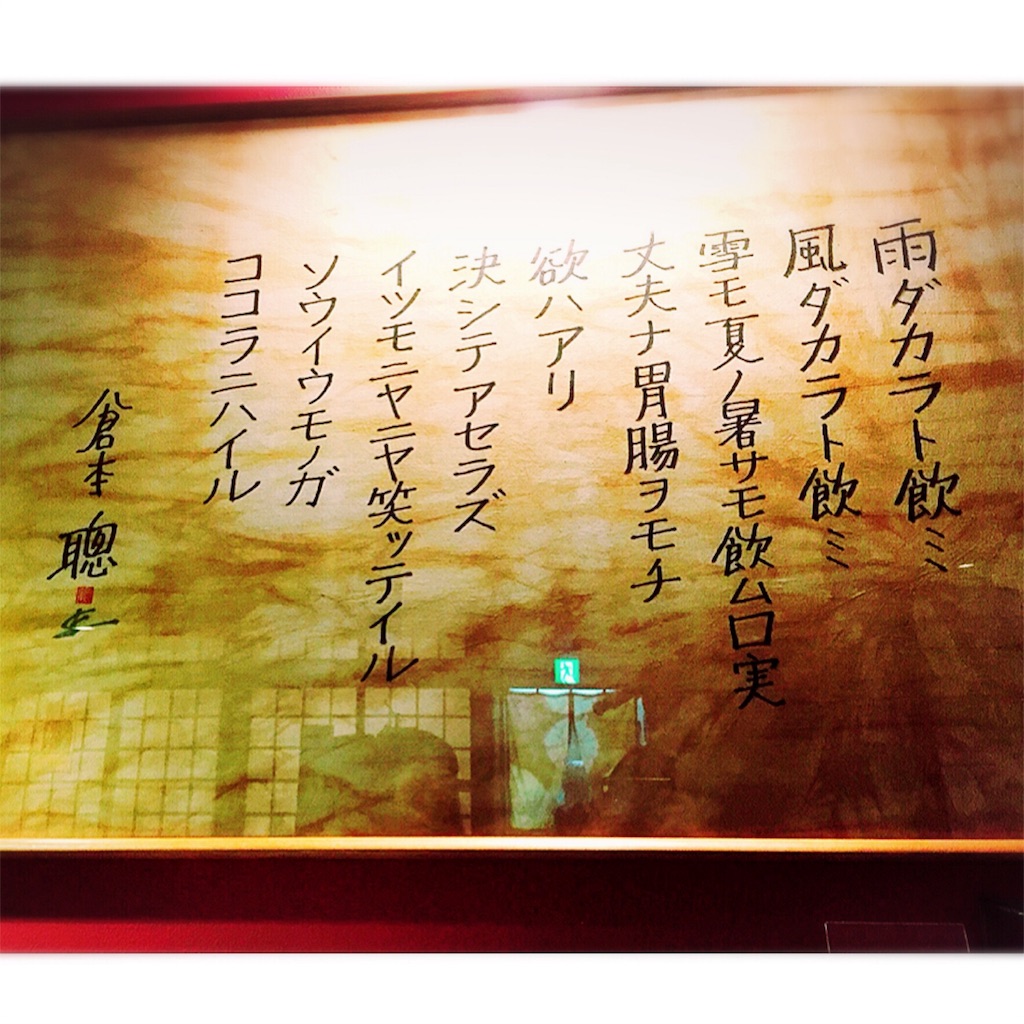 雨ダカラト飲ミ
風ダカラト飲ミ
雪モ夏ノ暑サモ飲ム口実
丈夫ナ胃腸ヲモチ
欲ハアリ
決シテアセラズ
イツモニヤニヤ笑ッテイル
ソウイウモノガ
ココラニハイル
倉本聰